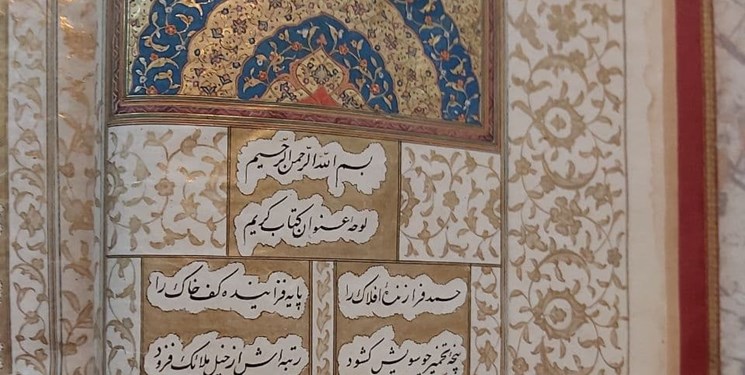 بسم الله الرحمن الرحیم
لوحهٔ عنوان کتاب کریم
حمد فرازندهٔ افلاک را
پایه فزاینده کف خاک را
پنجه تخمیر چو سویش گشود
رتبه‌اش از خیل ملائک فزود